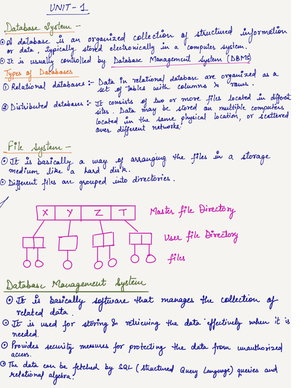 UNIT - 1.
Database System -
A database is an organized collection of structured information
or data, typically stored electronically in a computer system.
It is usually controlled by Database Management System (DBMS)
Types of Databases
Relational database :- Data in relational database are organized as a
set of tables with columns & rows.
Distributed database :- It consists of two or more files located in diffent
sites. Data may be stored on multiple computers
located in the same physical location, or scattered
over different networks.
File system -
It is basically a way of arranging the files in a storage
medium like a hard disk.
Different files are grouped into directories.
X Y Z T Master file Directory
User file Directory
files
Database Management System
It is basically software that manages the collection of
related data.
It is used for storing & retrieving the data effectively when it is
needed.
Provides security measures for protecting the data from unauthorized
access.
The data can be fetched by SQL (Structured Query Language) queries and
relational algebra.